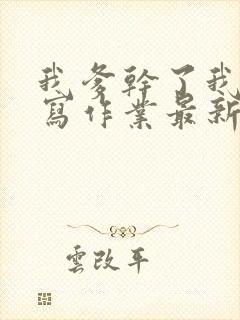 我爹幹了我
寫作業最新
雲改平